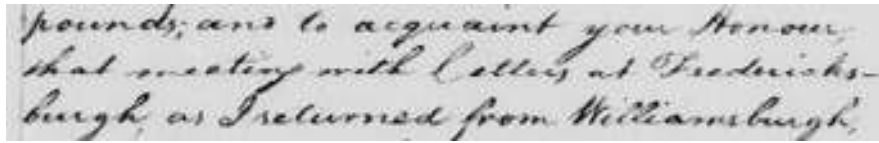 pounds; and to acquaint your Honour,
that meeting with Letters at Fredericks-
burgh, as I returned from Williamsburgh,